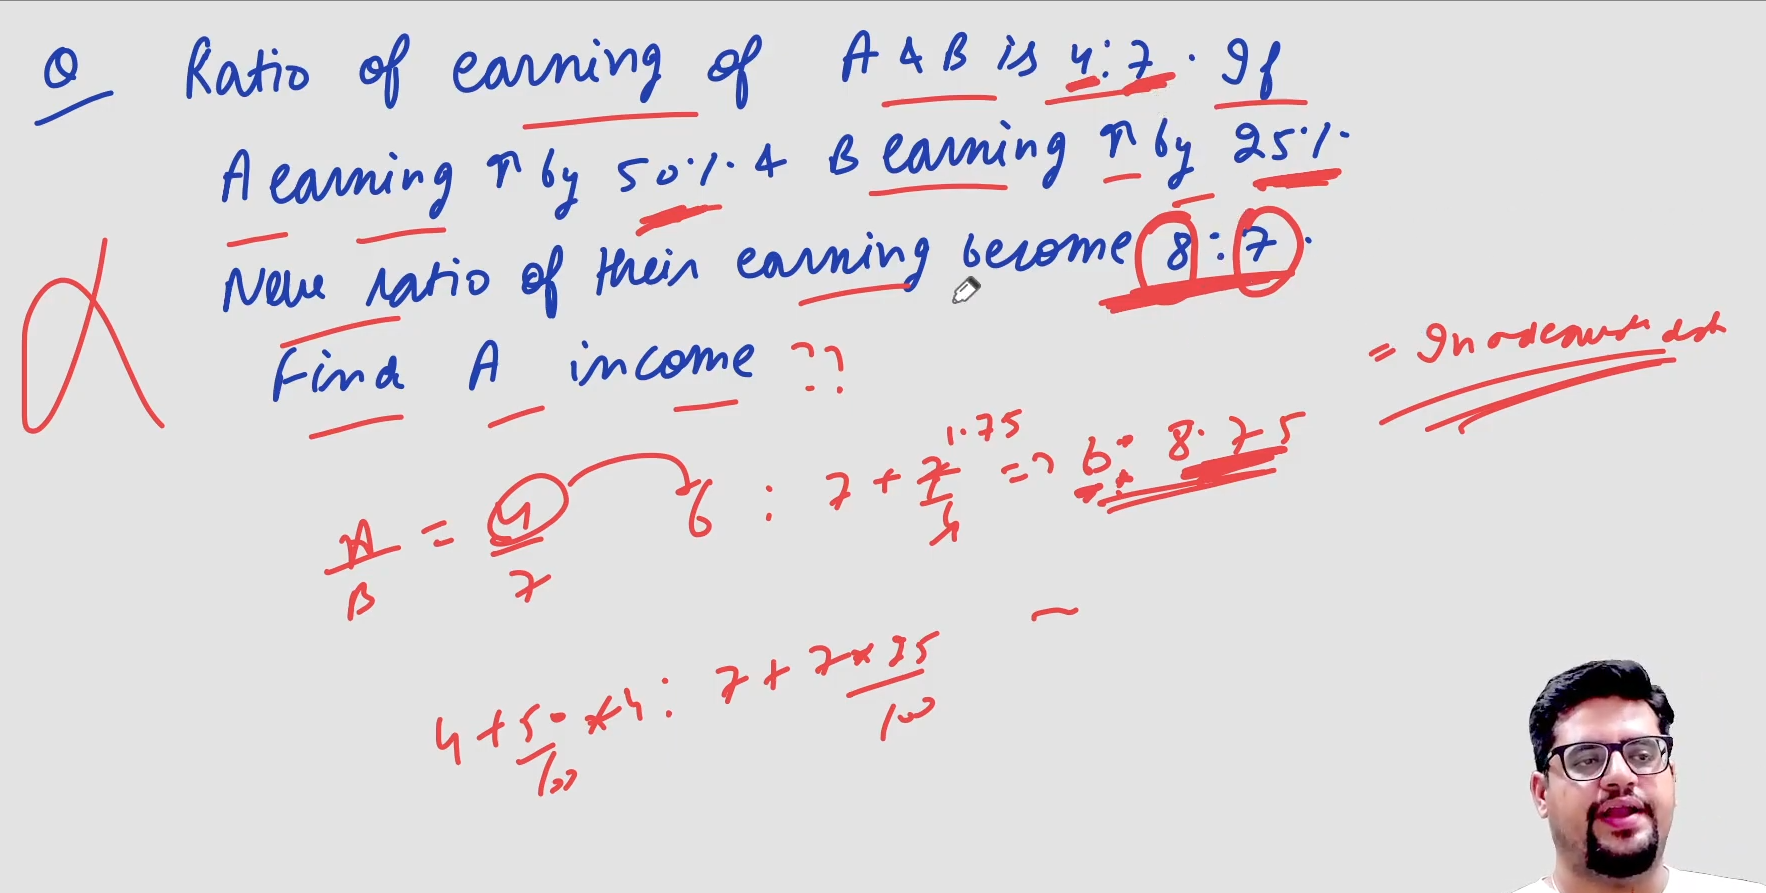 Q Ratio of earning of A & B is 4:7. If
A earning ↑ by 50% & B earning ↑ by 25%.
New ratio of their earning become 8:7.
Find A income ??
= Inadequate data
A/B = 4/7 6 : 7 + 7/4 1.75 => 6 : 8.75
4 + 50/100 × 4 : 7 + 7 × 25/100